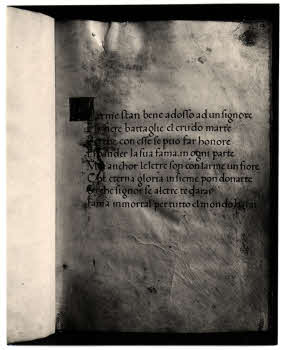 arme stan bene adosso ad un signore
battaglie el crudo marte
con esse se puo far honore
la sua fama in ogni parte
anchor le letre son con larme un fiore
Che eterna gloria insieme pon donarte
signor se a letre te darai
fama inmortal per tutto el mondo harai